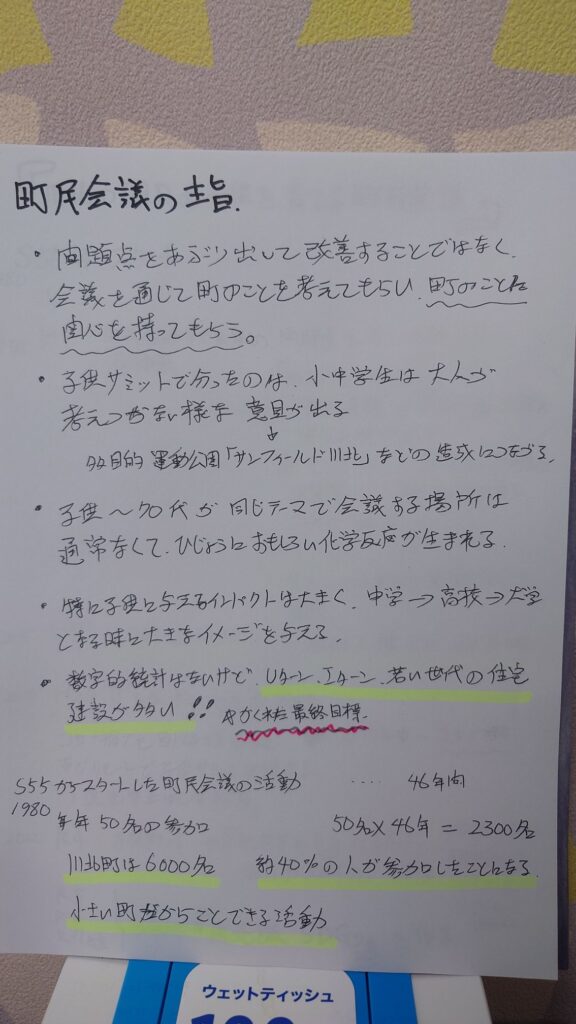 町民会議の主旨.
・問題点をあぶり出して改善することではなく、
会議を通じて町のことを考えてもらい、町のことに
関心を持ってもらう。
・子供サミットで分ったのは、小中学生は大人が
考えつかない様な意見が出る
↓
多目的運動公園「サンフィールド川北」などの造成につながる。
・子供〜70代が同じテーマで会議する場所は
通常なくて、ひじょうにおもしろい化学反応が生まれる.
・特に子供に与えるインパクトは大きく、中学→高校→大学
となる時に大きなイメージを与える.
・数字的統計はないけど、Uターン、Iターン、若い世代の住宅
建設が多い!! かくれた最終目標.
S55からスタートした町民会議の活動 ‥‥ 46年間
1980
毎年50名の参加 50名×46年=2300名
川北町は6000名 約40%の人が参加したことになる.
小さい町だからことできる活動
ウェットティッシュ